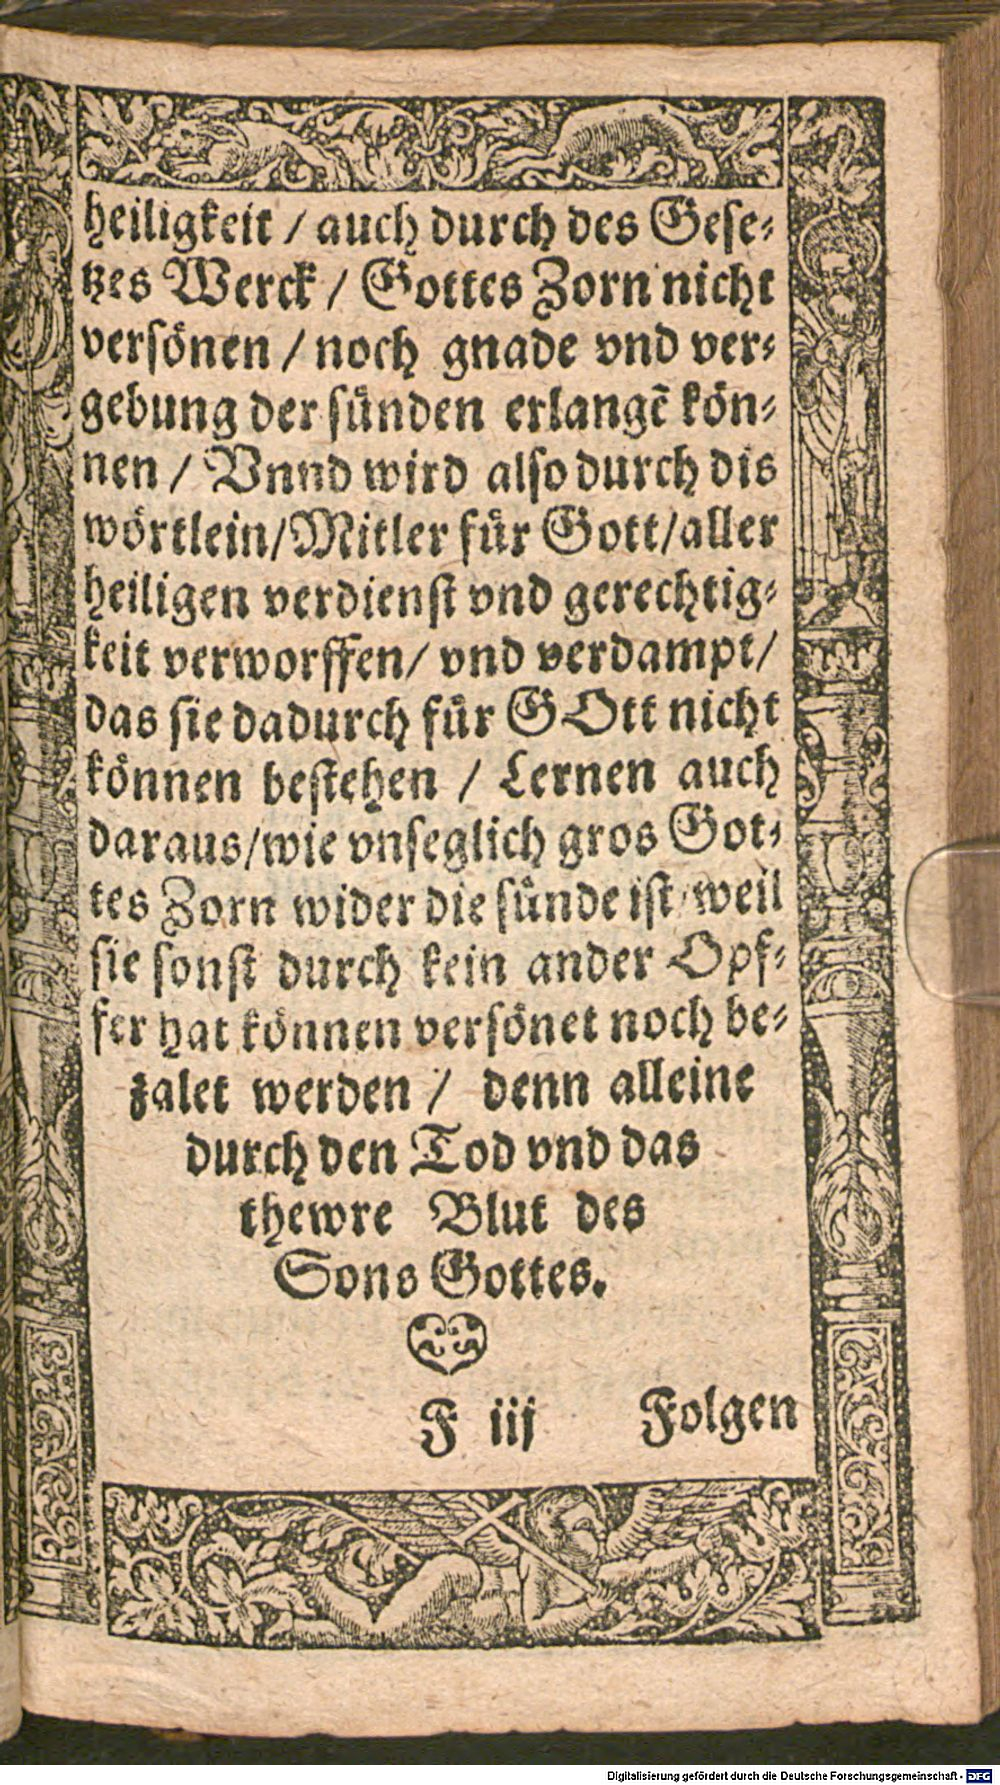 heiligkeit / auch durch des Gese-
tzes Werck / Gottes Zorn nicht
versönen / noch gnade vnd ver-
gebung der sünden erlangẽ kön-
nen / Vnnd wird also durch dis
wörtlein/Mitler für Gott/aller
heiligen verdienst vnd gerechtig-
keit verworffen/ vnd verdampt/
das sie dadurch für GOtt nicht
können bestehen / Lernen auch
daraus/wie vnseglich gros Got-
tes Zorn wider die sünde ist/weil
sie sonst durch kein ander Opf-
fer hat können versönet noch be-
zalet werden / denn alleine
durch den Tod vnd das
thewre Blut des
Sons Gottes.
F iij Folgen
Digitalisierung gefördert durch die Deutsche Forschungsgemeinschaft - DFG